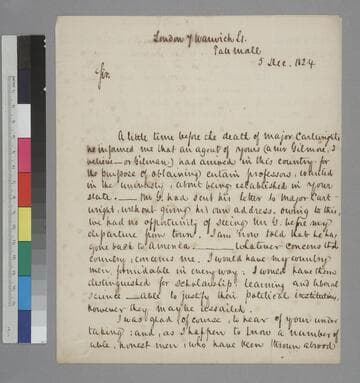 London 7 Warwich St.
Pall Mall
5 Dec. 1824
Sir.
A little time before the death of major Cartwright,
he informed me that an agent of yours (a mr Gilmore, I
believe—or Gilman,) had arrived in this country for
the purpose of obtaining certain professors, wanted
in the university, about being established in your
state. — Mr G. had sent his letter to Major Cart-
wright, without giving his own address. owing to this,
we had no opportunity of seeing Mr G before my
departure from town. I am now told that he has
gone back to America. — Whatever concerns that
country, concerns me. I would have my country
men, formidable in every way: I would have them
distinguished for scholarship, learning and liberal
science — able to justify their political institutions,
however they may be assailed.
I was glad, of course, to hear of your under
taking: and, as I happen to know a number of
able, honest men, who have been thrown abroad